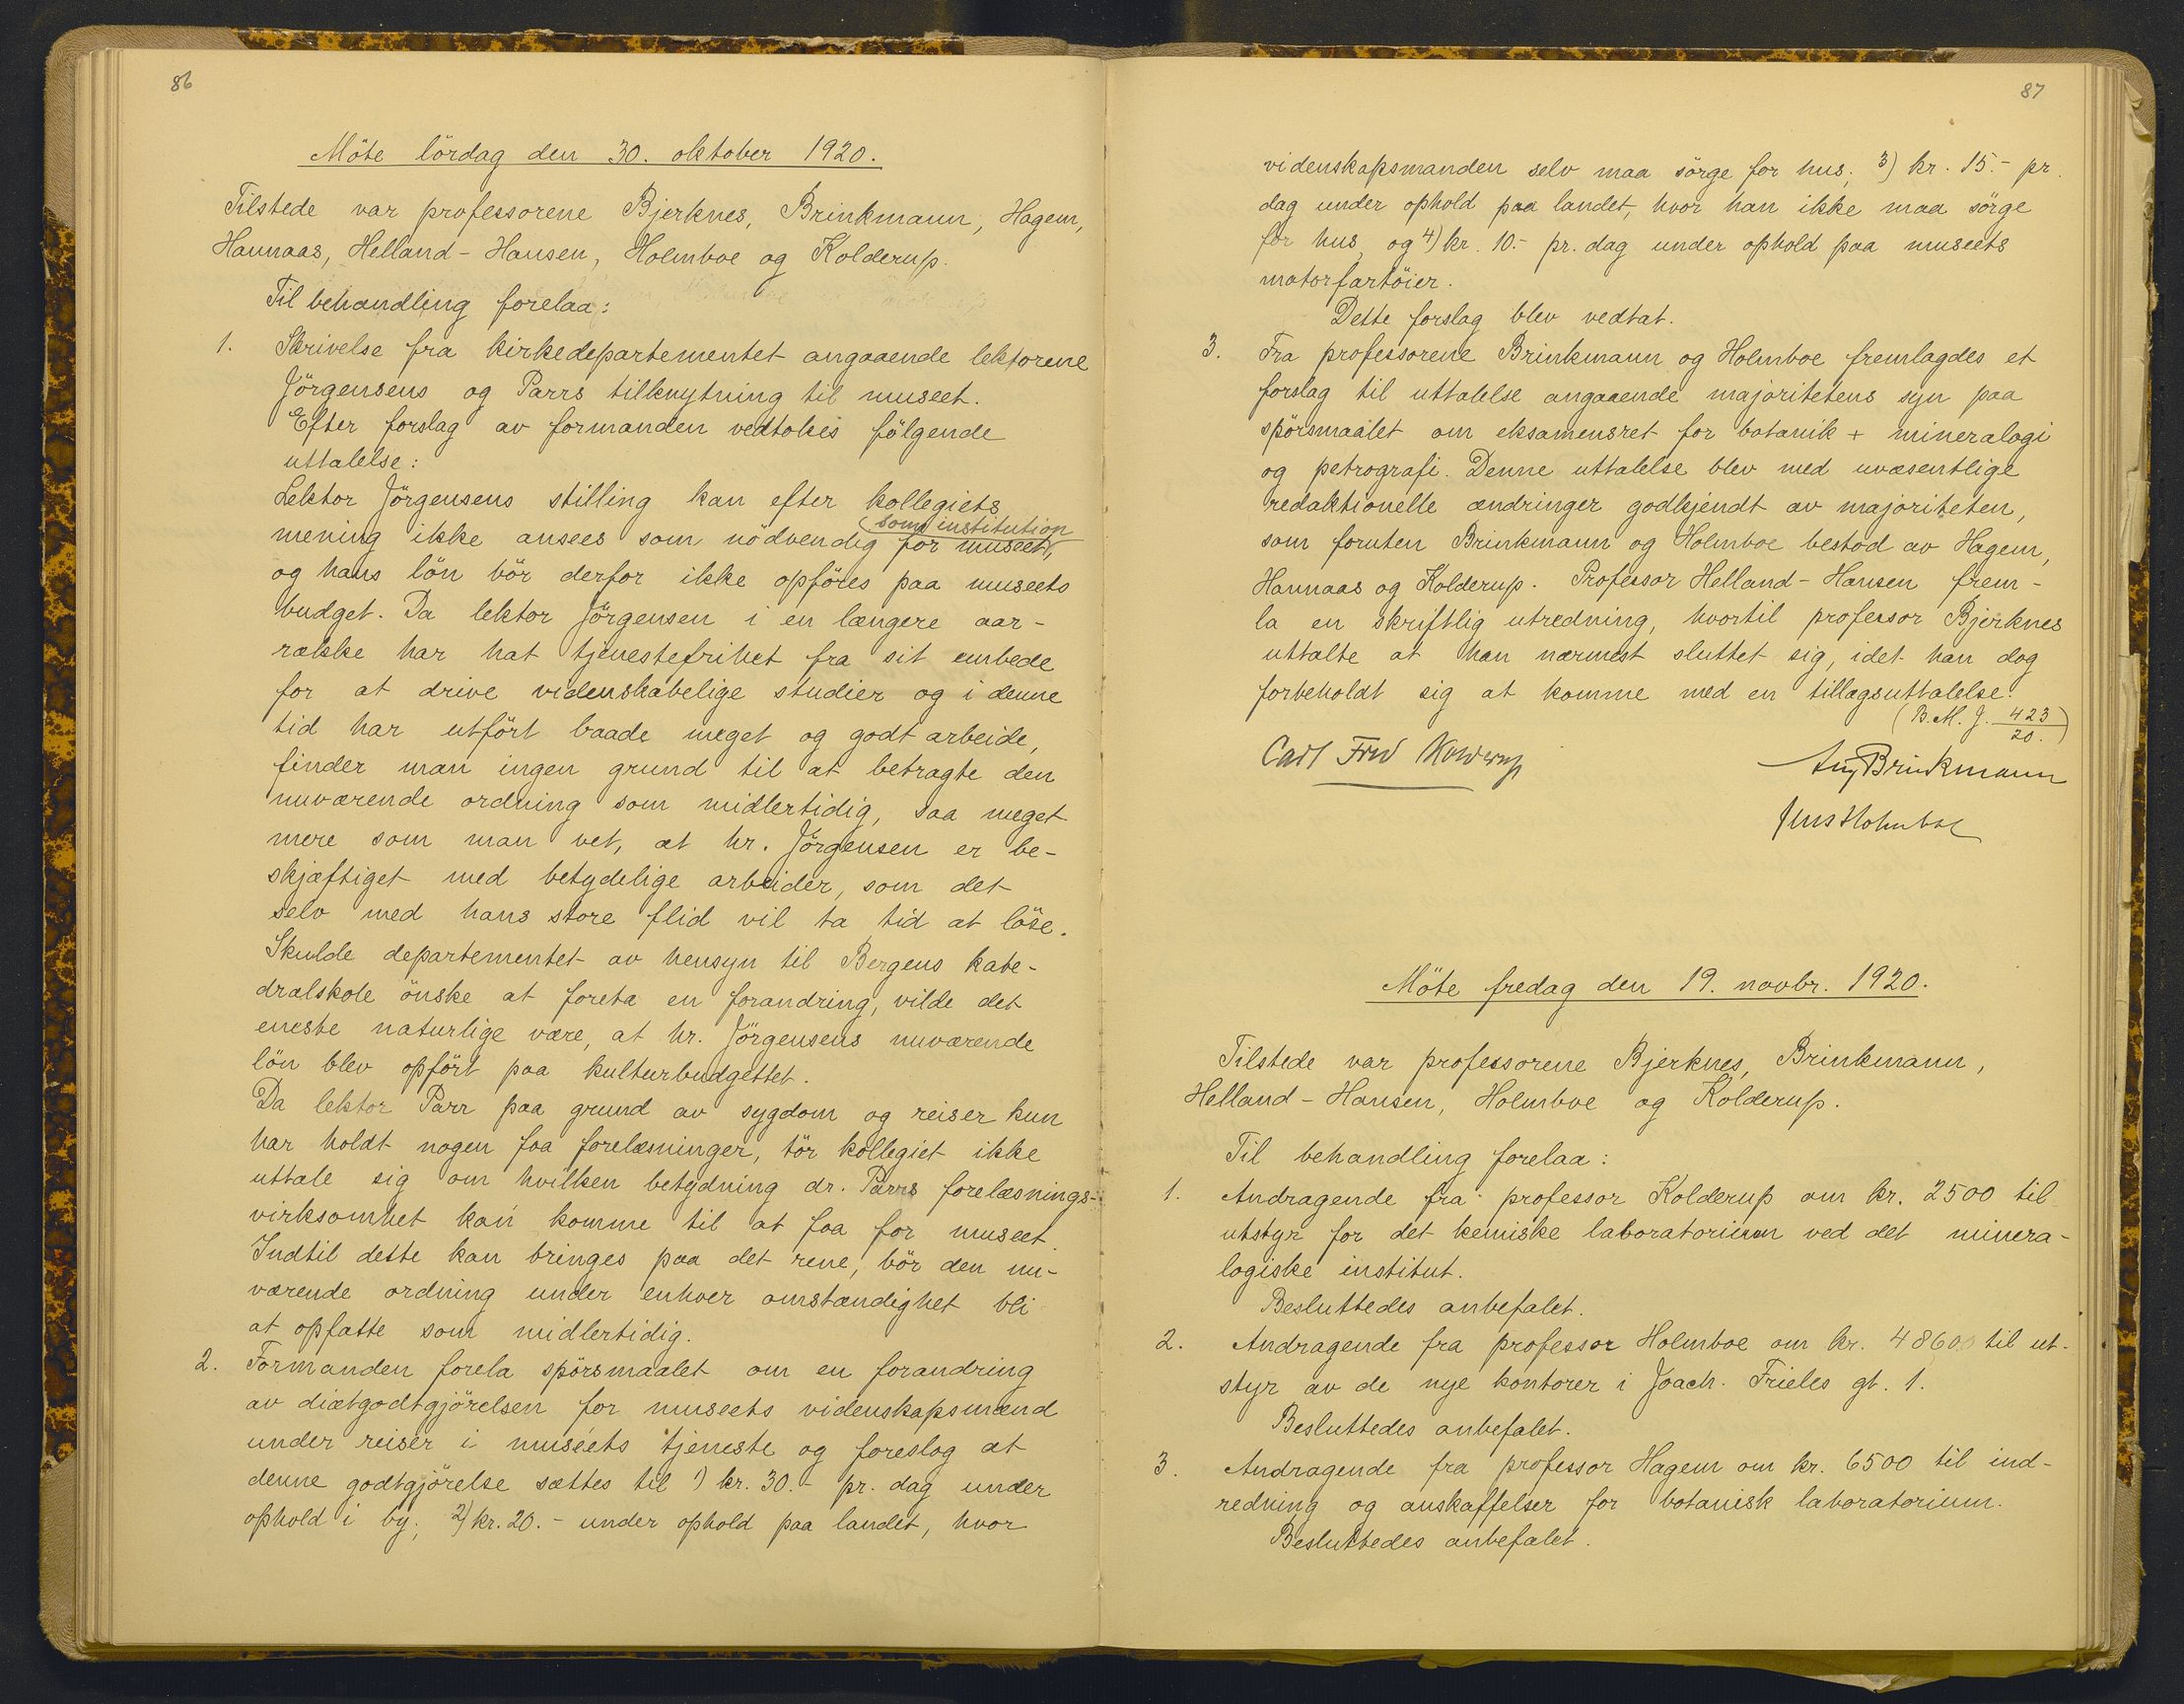 86
Möte lördag den 30. oktober 1920.
Tilstede var professorene Bjerknes, Brinkmann, Hagem,
Hannaas, Helland-Hansen, Holmboe og Kolderup.
Til behandling forelaa:
1. Skrivelse fra kirkedepartementet angaaende lektorene
Jörgensens og Parrs tilknytning til museet.
Efter forslag av formanden vedtokes fölgende
uttalelse:
Lektor Jörgensens stilling kan efter kollegiets
(som institution
mening ikke ansees som nödvendig for museet,
og hans lön bör derfor ikke opföres paa museets
budget. Da lektor Jörgensen i en længere aar-
række har hat tjenestefrihet fra sit embede
for at drive videnskabelige studier og i denne
tid har utfört baade meget og godt arbeide,
finder man ingen grund til at betragte den
nuværende ordning som midlertidig, saa meget
mere som man vet, at hr. Jörgensen er be-
skjæftiget med betydelige arbeider, som det
selv med hans store flid vil ta tid at löse.
Skulde departementet av hensyn til Bergens kate-
dralskole önske at foreta en forandring, vilde det
eneste naturlige være, at hr. Jörgensens nuværende
lön blev opfört paa kulturbudgettet.
Da lektor Parr paa grund av sygdom og reiser kun
har holdt nogen faa forelæsninger, tör kollegiet ikke
uttale sig om hvilken betydning dr. Parrs forelæsnings-
virksomhet kan komme til at faa for museet.
Indtil dette kan bringes paa det rene, bör den nu-
værende ordning under enhver omstændighet bli
at opfatte som midlertidig.
2. Formanden forela spörsmaalet om en forandring
av diætgodtgjörelsen for museets videnskapsmænd
under reiser i museets tjeneste og foreslog at
denne godtgjörelse sættes til 1) kr. 30.- pr. dag under
ophold i by; 2) kr. 20.- under ophold paa landet, hvor
87
videnskapsmanden selv maa sörge for hus; 3) kr. 15.- pr.
dag under ophold paa landet, hvor han ikke maa sörge
for hus, og 4) kr. 10.- pr. dag under ophold paa museets
motorfartöier.
Dette forslag blev vedtat.
3. Fra professorene Brinkmann og Holmboe fremlagdes et
forslag til uttalelse angaaende majoritetens syn paa
spörsmaalet om eksamensret for botanik + mineralogi
og petrografi. Denne uttalelse blev med uvæsentlige
redaktionelle ændringer godkjendt av majoriteten,
som foruten Brinkmann og Holmboe bestod av Hagem,
Hannaas og Kolderup. Professor Helland-Hansen frem-
la en skriftlig utredning, hvortil professor Bjerknes
uttalte at han nærmest sluttet sig, idet han dog
forbeholdt sig at komme med en tillægsuttalelse.
(B.M.J. 423/20.)
Carl Fred Kolderup
Aug Brinkmann
Jens Holmboe
Möte fredag den 19. novbr. 1920.
Tilstede var professorene Bjerknes, Brinkmann,
Helland-Hansen, Holmboe og Kolderup.
Til behandling forelaa:
1. Andragende fra professor Kolderup om kr. 2500 til
utstyr for det kemiske laboratorium ved det minera-
logiske institut.
Besluttedes anbefalet.
2. Andragende fra professor Holmboe om kr. 4860 til ut-
styr av de nye kontorer i Joach. Frieles gt. 1.
Besluttedes anbefalet.
3. Andragende fra professor Hagem om kr. 6500 til ind-
redning og anskaffelser for botanisk laboratorium.
Besluttedes anbefalet.